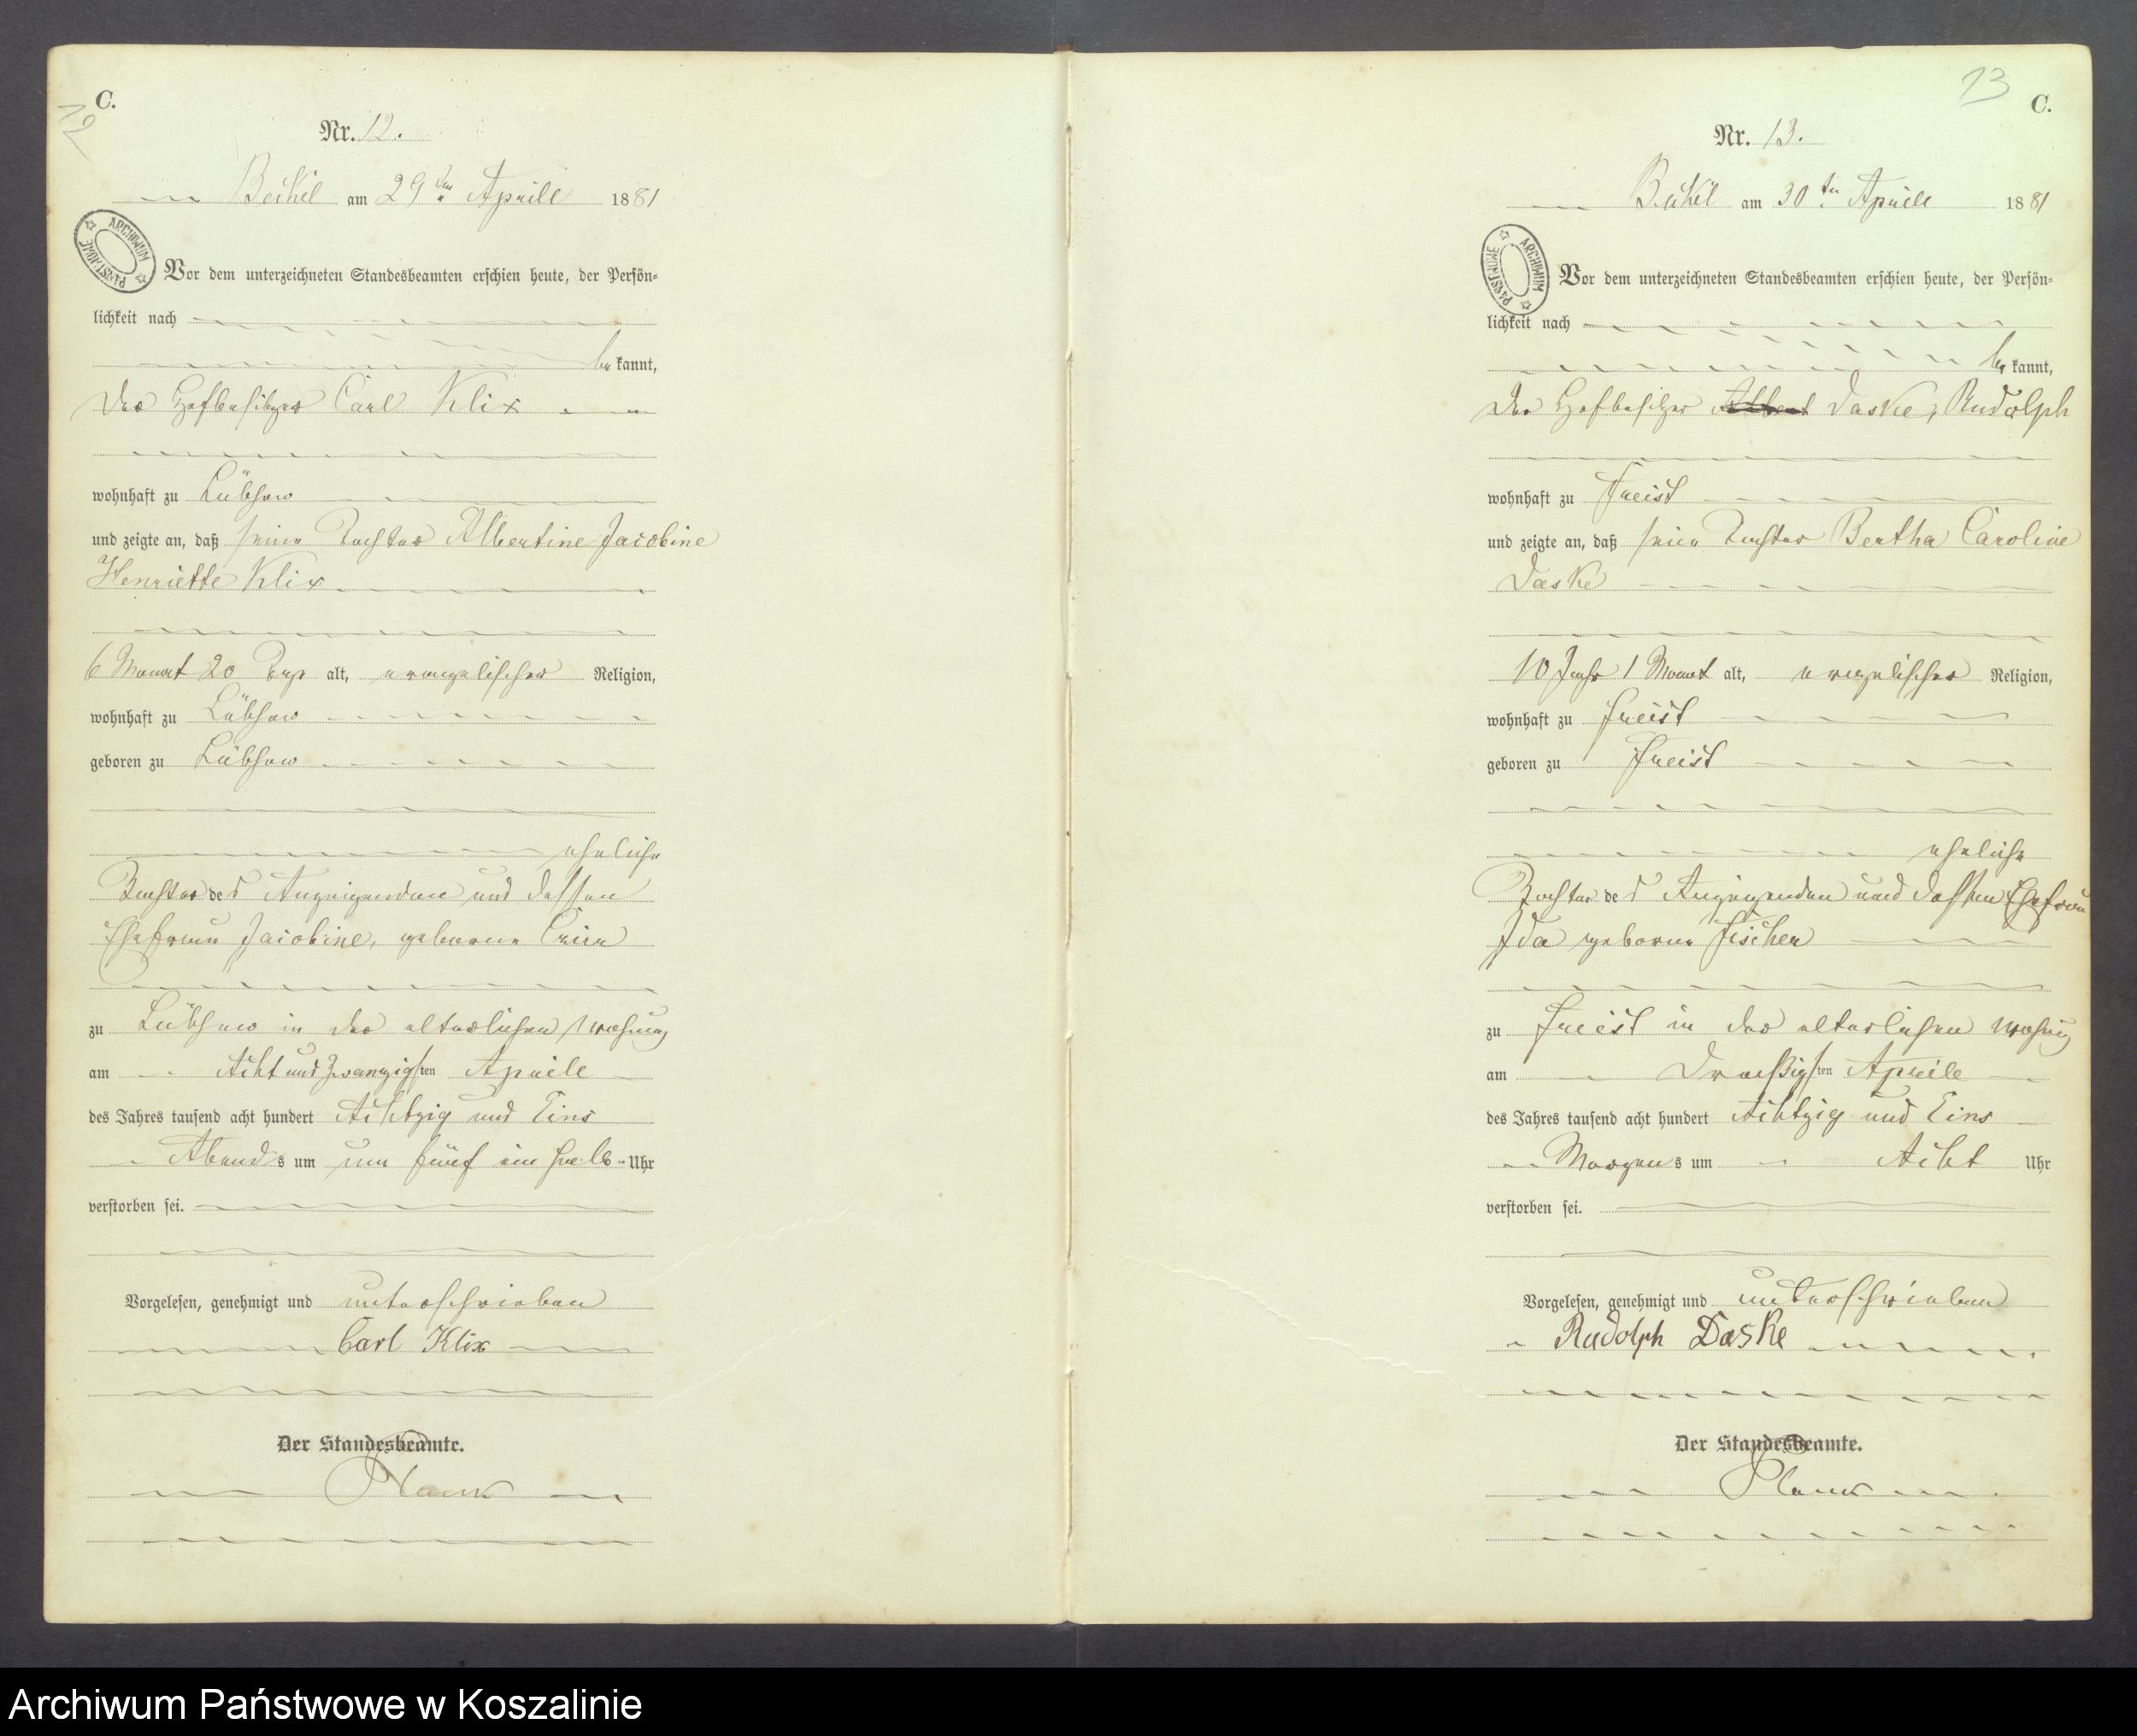 C.
12
Nr. 12.
Beckel am 29ten Aprill 1881
ARCHIWUM PAŃSTWOWE
Vor dem unterzeichneten Standesbeamten erschien heute, der Persön-
lichkeit nach
bekannt,
der Hofbesitzer Carl Klix
wohnhaft zu Lübzow
und zeigte an, daß seine Tochter Albertine Jacobine
Henriette Klix
6 Monat 20 Tage alt, evangelischer Religion,
wohnhaft zu Lübzow
geboren zu Lübzow
eheliche
Tochter des Anzeigenden und dessen
Ehefrau Jacobine, geborene
zu Lübzow in der elterlichen Wohnung
am Acht und Zwanzigsten Aprile
des Jahres tausend acht hundert Achtzig und Eins
Abends um um fünf ein halb Uhr
verstorben sei.
Vorgelesen, genehmigt und unterschrieben
Carl Klix
Der Standesbeamte.
13
C.
Nr. 13.
Beckel am 30ten Aprill 1881
ARCHIWUM PAŃSTWOWE
Vor dem unterzeichneten Standesbeamten erschien heute, der Persön-
lichkeit nach
bekannt,
der Hofbesitzer Albert Daske, Rudolph
wohnhaft zu Freist
und zeigte an, daß seine Tochter Bertha Caroline
Daske
10 Jahr 1 Monat alt, evangelischer Religion,
wohnhaft zu Freist
geboren zu Freist
eheliche
Tochter des Anzeigenden und dessen Ehefrau
Ida geborene Fischer
zu Freist in der elterlichen Wohnung
am Dreißigsten Aprile
des Jahres tausend acht hundert Achtzig und Eins
Morgens um Acht Uhr
verstorben sei.
Vorgelesen, genehmigt und unterschrieben
Rudolph Daske
Der Standesbeamte.
Archiwum Państwowe w Koszalinie